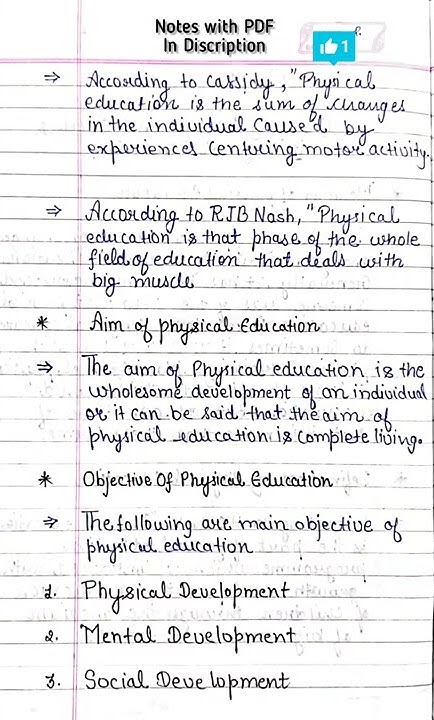 Notes with PDF
In Discription
1
⇒ According to Cassidy, "Physical
education is the sum of changes
in the individual caused by
experiences centuring motor activity.
⇒ According to RJB Nash, "Physical
education is that phase of the whole
field of education that deals with
big muscle
* Aim of physical Education
⇒ The aim of Physical education is the
wholesome development of an individual
or it can be said that the aim of
physical education is complete living.
* Objective Of Physical Education
⇒ The following are main objective of
physical education
1. Physical Development
2. Mental Development
3. Social Development